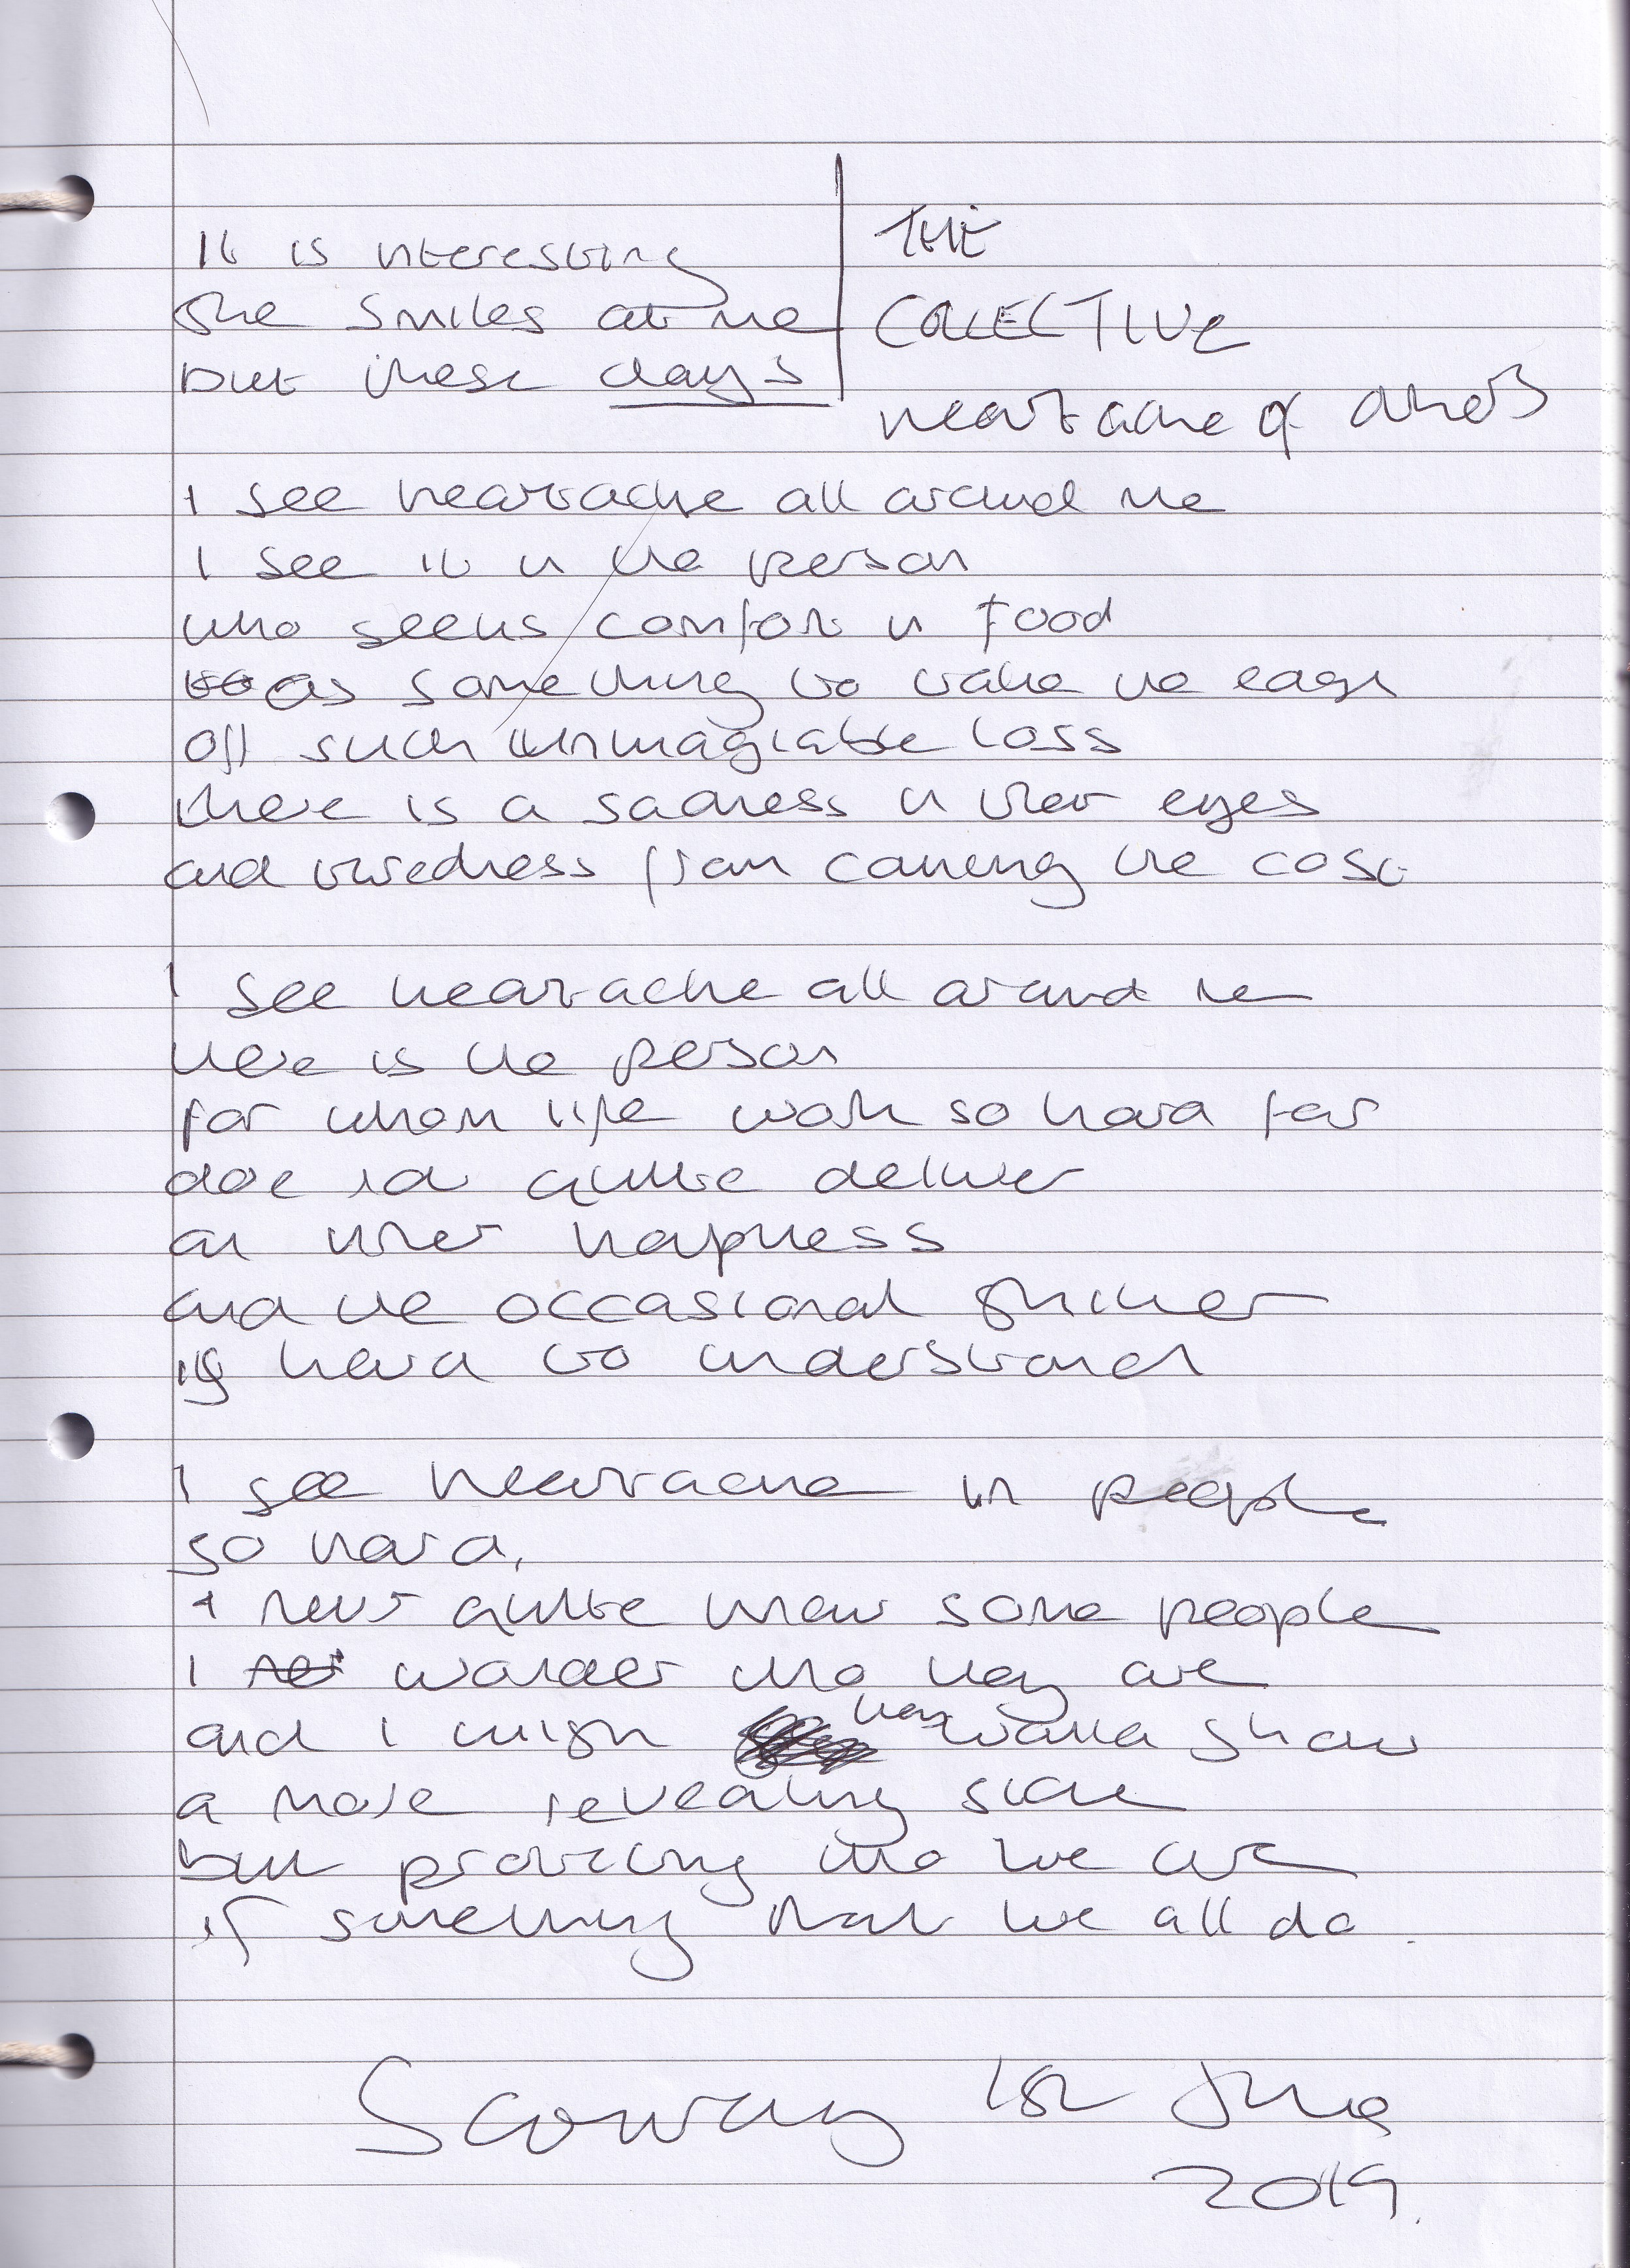 It is interesting
She smiles at me
but these days
THE
COLLECTIVE
heartache of others
I see heartache all around me
I see it in the person
who seeks comfort in food
as something to take the edge
off such unimaginable loss
there is a sadness in their eyes
and tiredness from carrying the cost
I see heartache all around me
here is the person
for whom life work so hard for
doe not quite deliver
an inner happiness
and the occasional
is hard to understand
I see heartache in people
so hard,
I never quite know some people
I wonder who they are
and I wish they would show
a more revealing side
but protecting who we are
is something that we all do.
Saturday 1st June
2019.